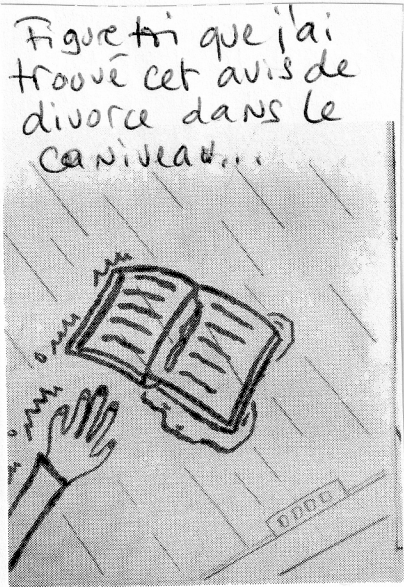 Figure toi que j'ai
trouvé cet avis de
divorce dans le
caniveau...